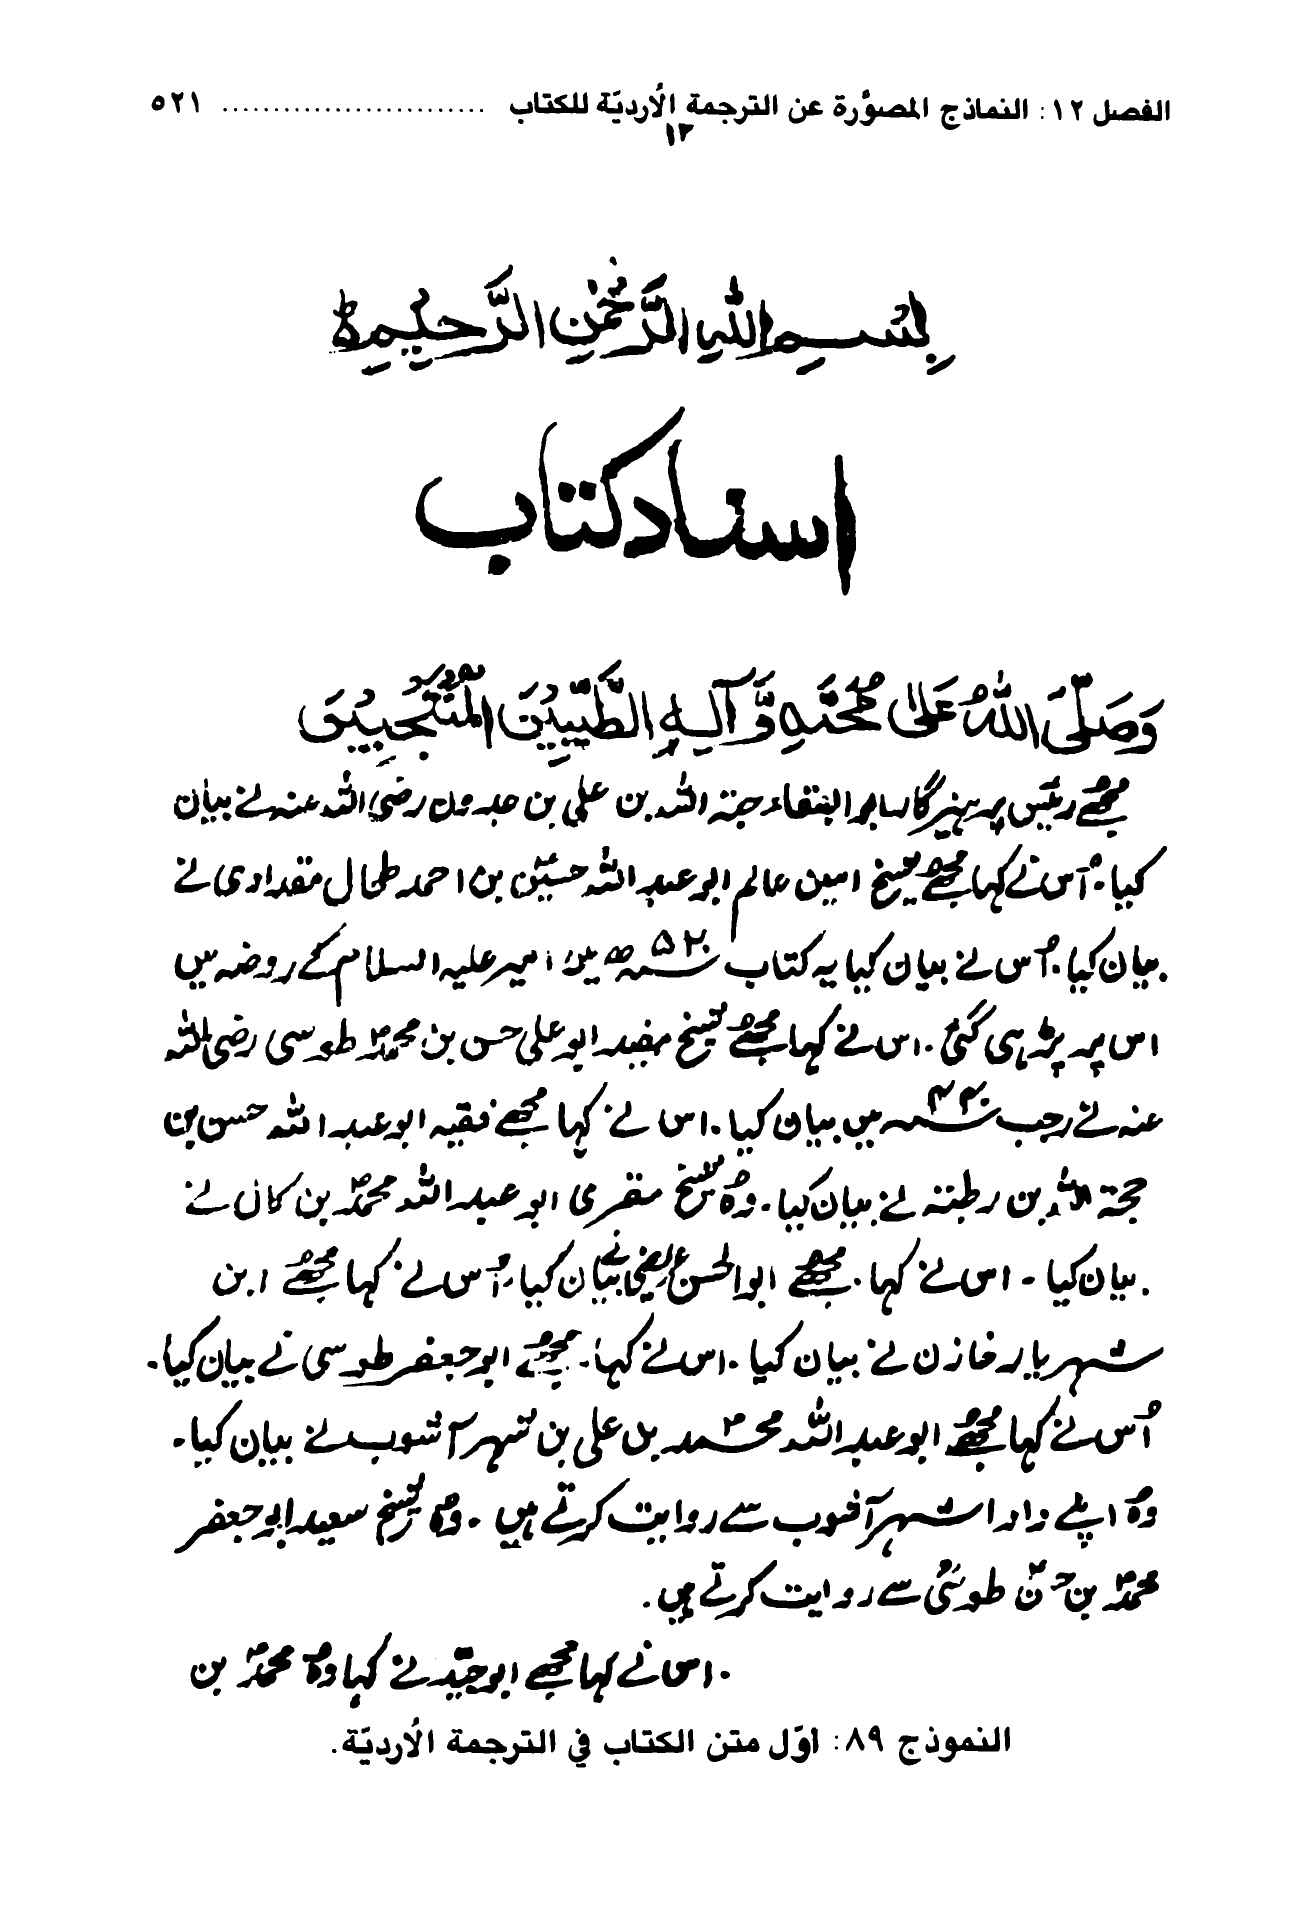 الفصل ١٢: النماذج المصوَّرة عن الترجمة الأُرديّة للكتاب ......................... ٥٢١
١٢
بِسْمِ اللهِ الرَّحْمٰنِ الرَّحِيْمِ ط
اسناد کتاب
وَصَلَّى اللهُ عَلىٰ مُحَمَّدٍ وَّآلِهِ الطَّيِّبِيْنَ الْمُنْتَجَبِيْنَ
مجھے رئیس پرہیزگار ابو البقاء حبتہ اللہ بن علی بن حدون رضی اللہ عنہ نے بیان
کیا۔ اُس نے کہا مجھے شیخ امین عالم ابو عبد اللہ حسینؑ بن احمد طحال مقدادی نے
بیان کیا۔ اُس نے بیان کیا یہ کتاب ۵۲۰ھ میں امیر علیہ السلام کے روضہ میں
اس پر پڑھی گئی۔ اس نے کہا مجھے شیخ مفید ابو علی حسن بن محمدؐ طوسی رضی اللہ
عنہ نے رجب ۴۴۰ میں بیان کیا۔ اس نے کہا مجھے فقیہ ابو عبد اللہ حسن بن
حجتہ اللہ بن رطبتہ نے بیان کیا۔ وہ شیخ مقری ابو عبد اللہ محمدؐ بن کال نے
بیان کیا۔ اس نے کہا۔ مجھے ابو الحسن عریضی نے بیان کیا، اُس نے کہا مجھے ابن
شہریار خازن نے بیان کیا۔ اس نے کہا۔ مجھے ابو جعفر طوسی نے بیان کیا۔
اُس نے کہا مجھے ابو عبد اللہ محمد بن علی بن شہر آشوب نے بیان کیا۔
وہ اپنے دادا شہر آشوب سے روایت کرتے ہیں۔ وہ شیخ سعید ابو جعفر
محمدؐ بن حسنؑ طوسیؒ سے روایت کرتے ہیں۔
اس نے کہا مجھے ابو جیّد نے کہا وہ محمدؐ بن
النموذج ٨٩: أوّل متن الكتاب في الترجمة الأُرديّة.